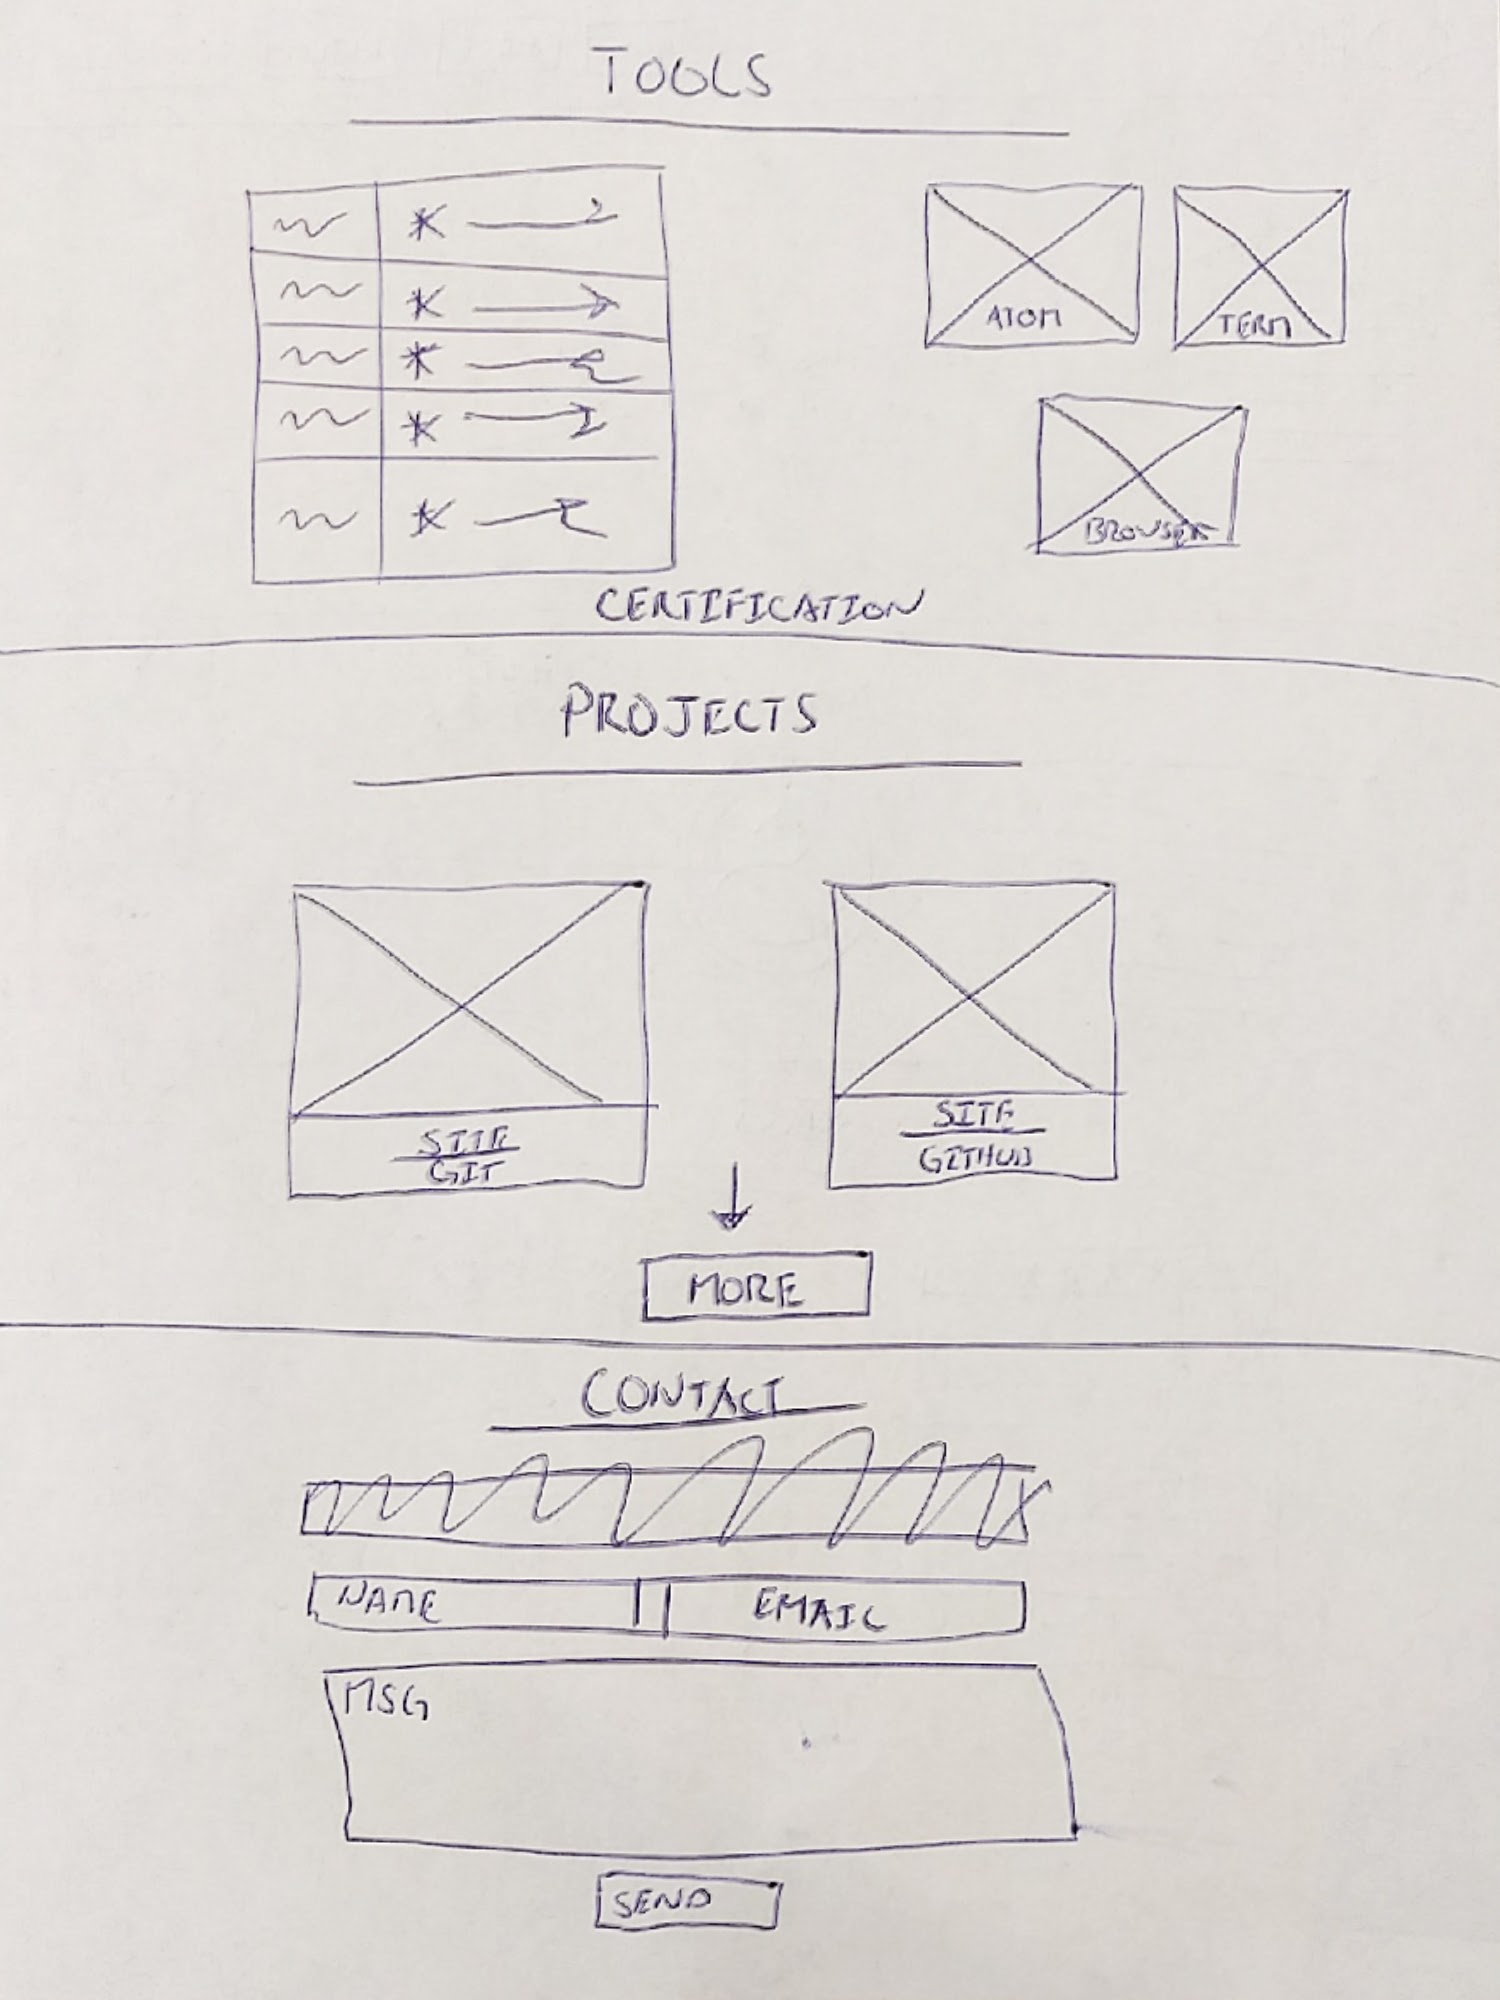 TOOLS
ATOM
TERM
BROWSER
CERTIFICATION
PROJECTS
SITE
GIT
SITE
GITHUB
MORE
CONTACT
NAME
EMAIL
MSG
SEND